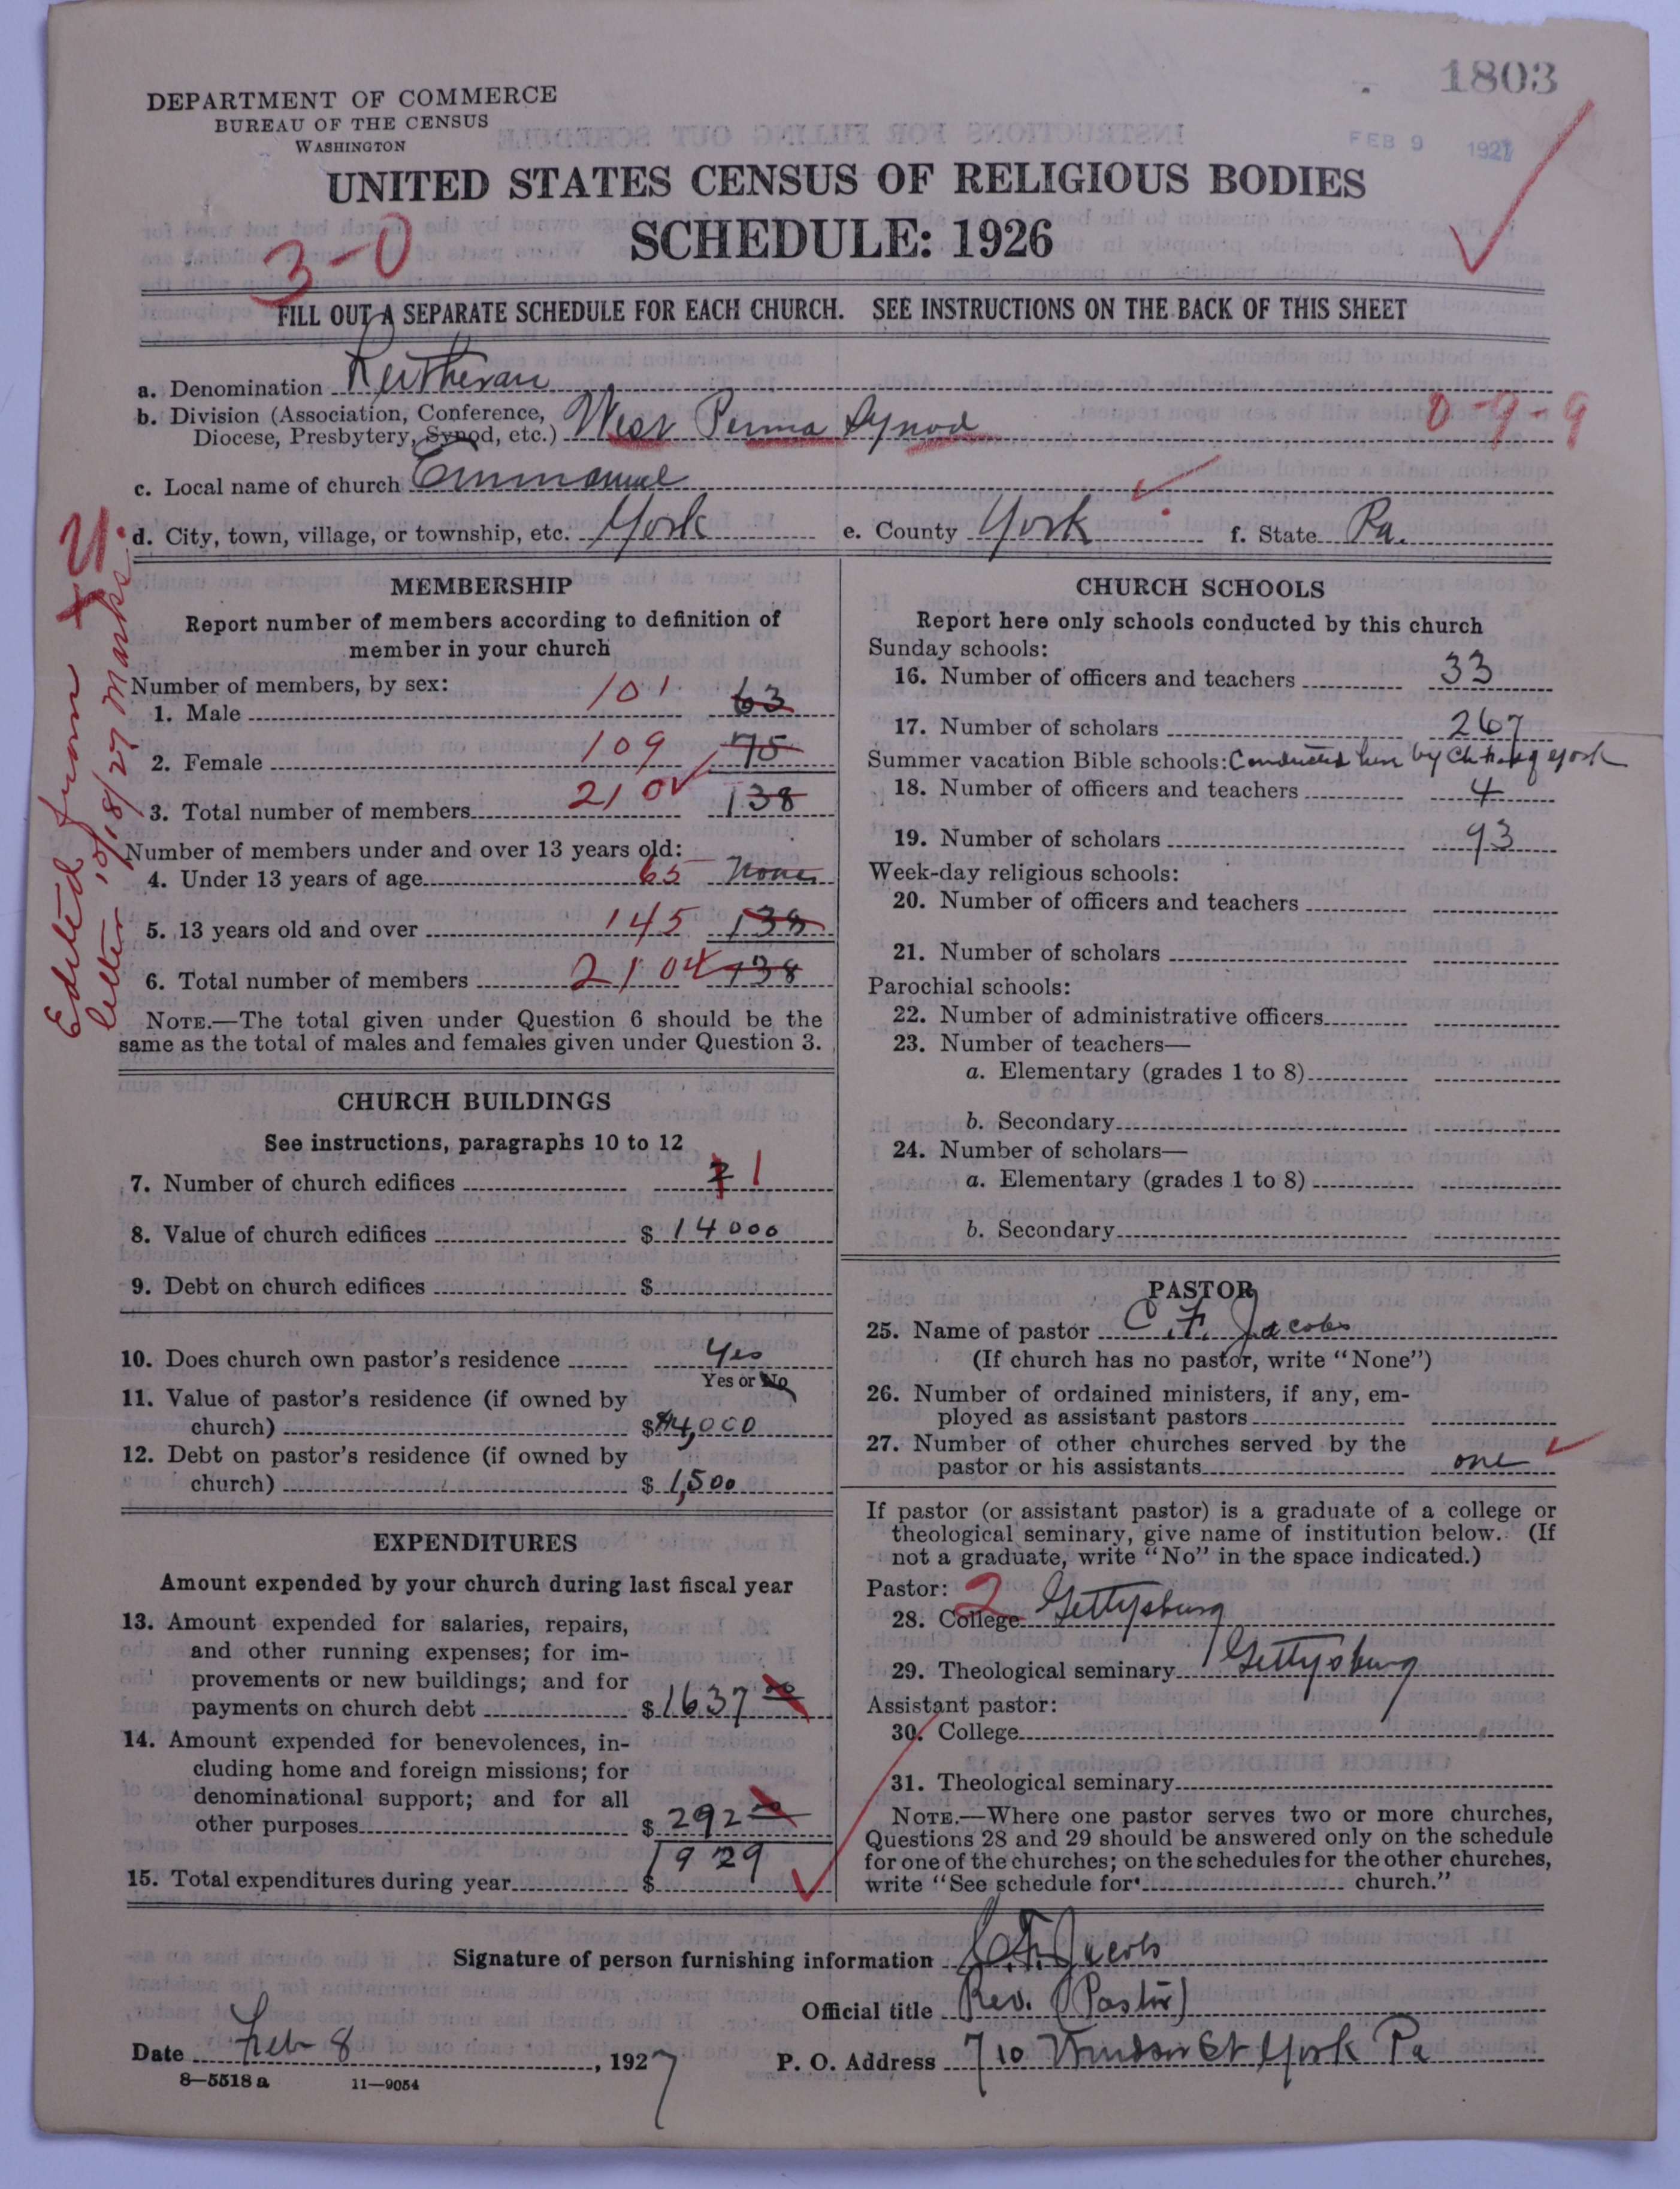 1803
DEPARTMENT OF COMMERCE
BUREAU OF THE CENSUS
WASHINGTON
FEB 9 1927
UNITED STATES CENSUS OF RELIGIOUS BODIES
SCHEDULE: 1926
3-0
FILL OUT A SEPARATE SCHEDULE FOR EACH CHURCH. SEE INSTRUCTIONS ON THE BACK OF THIS SHEET
a. Denomination Lutheran
b. Division (Association, Conference,
Diocese, Presbytery, Synod, etc.) West Penna Synod 0-9-9
c. Local name of church Emmanuel
d. City, town, village, or township, etc. York e. County York f. State Pa.
Edited from
letter 10/18/27 Marks
MEMBERSHIP
Report number of members according to definition of
member in your church
Number of members, by sex:
1. Male 101 63
2. Female 109 75
3. Total number of members 210 138
Number of members under and over 13 years old:
4. Under 13 years of age 65 None
5. 13 years old and over 145 138
6. Total number of members 210 138
NOTE.—The total given under Question 6 should be the
same as the total of males and females given under Question 3.
CHURCH BUILDINGS
See instructions, paragraphs 10 to 12
7. Number of church edifices 1
8. Value of church edifices $ 14000
9. Debt on church edifices $
10. Does church own pastor's residence Yes
Yes or No
11. Value of pastor's residence (if owned by
church) $ 4,000
12. Debt on pastor's residence (if owned by
church) $ 1,500
EXPENDITURES
Amount expended by your church during last fiscal year
13. Amount expended for salaries, repairs,
and other running expenses; for im-
provements or new buildings; and for
payments on church debt $ 1637 00
14. Amount expended for benevolences, in-
cluding home and foreign missions; for
denominational support; and for all
other purposes $ 292 00
15. Total expenditures during year $ 1929
CHURCH SCHOOLS
Report here only schools conducted by this church
Sunday schools:
16. Number of officers and teachers 33
17. Number of scholars 267
Summer vacation Bible schools: Conducted here by Ch of York
18. Number of officers and teachers 4
19. Number of scholars 93
Week-day religious schools:
20. Number of officers and teachers
21. Number of scholars
Parochial schools:
22. Number of administrative officers
23. Number of teachers—
a. Elementary (grades 1 to 8)
b. Secondary
24. Number of scholars—
a. Elementary (grades 1 to 8)
b. Secondary
PASTOR
25. Name of pastor C. F. Jacobs
(If church has no pastor, write "None")
26. Number of ordained ministers, if any, em-
ployed as assistant pastors
27. Number of other churches served by the
pastor or his assistants one
If pastor (or assistant pastor) is a graduate of a college or
theological seminary, give name of institution below. (If
not a graduate, write "No" in the space indicated.)
Pastor: 2
28. College Gettysburg
29. Theological seminary Gettysburg
Assistant pastor:
30. College
31. Theological seminary
NOTE.—Where one pastor serves two or more churches,
Questions 28 and 29 should be answered only on the schedule
for one of the churches; on the schedules for the other churches,
write "See schedule for church."
Signature of person furnishing information C. F. Jacobs
Official title Rev. (Pastor)
Date Feb 8, 1927 P. O. Address 710 Windsor St York Pa
8—5518 a 11—9054